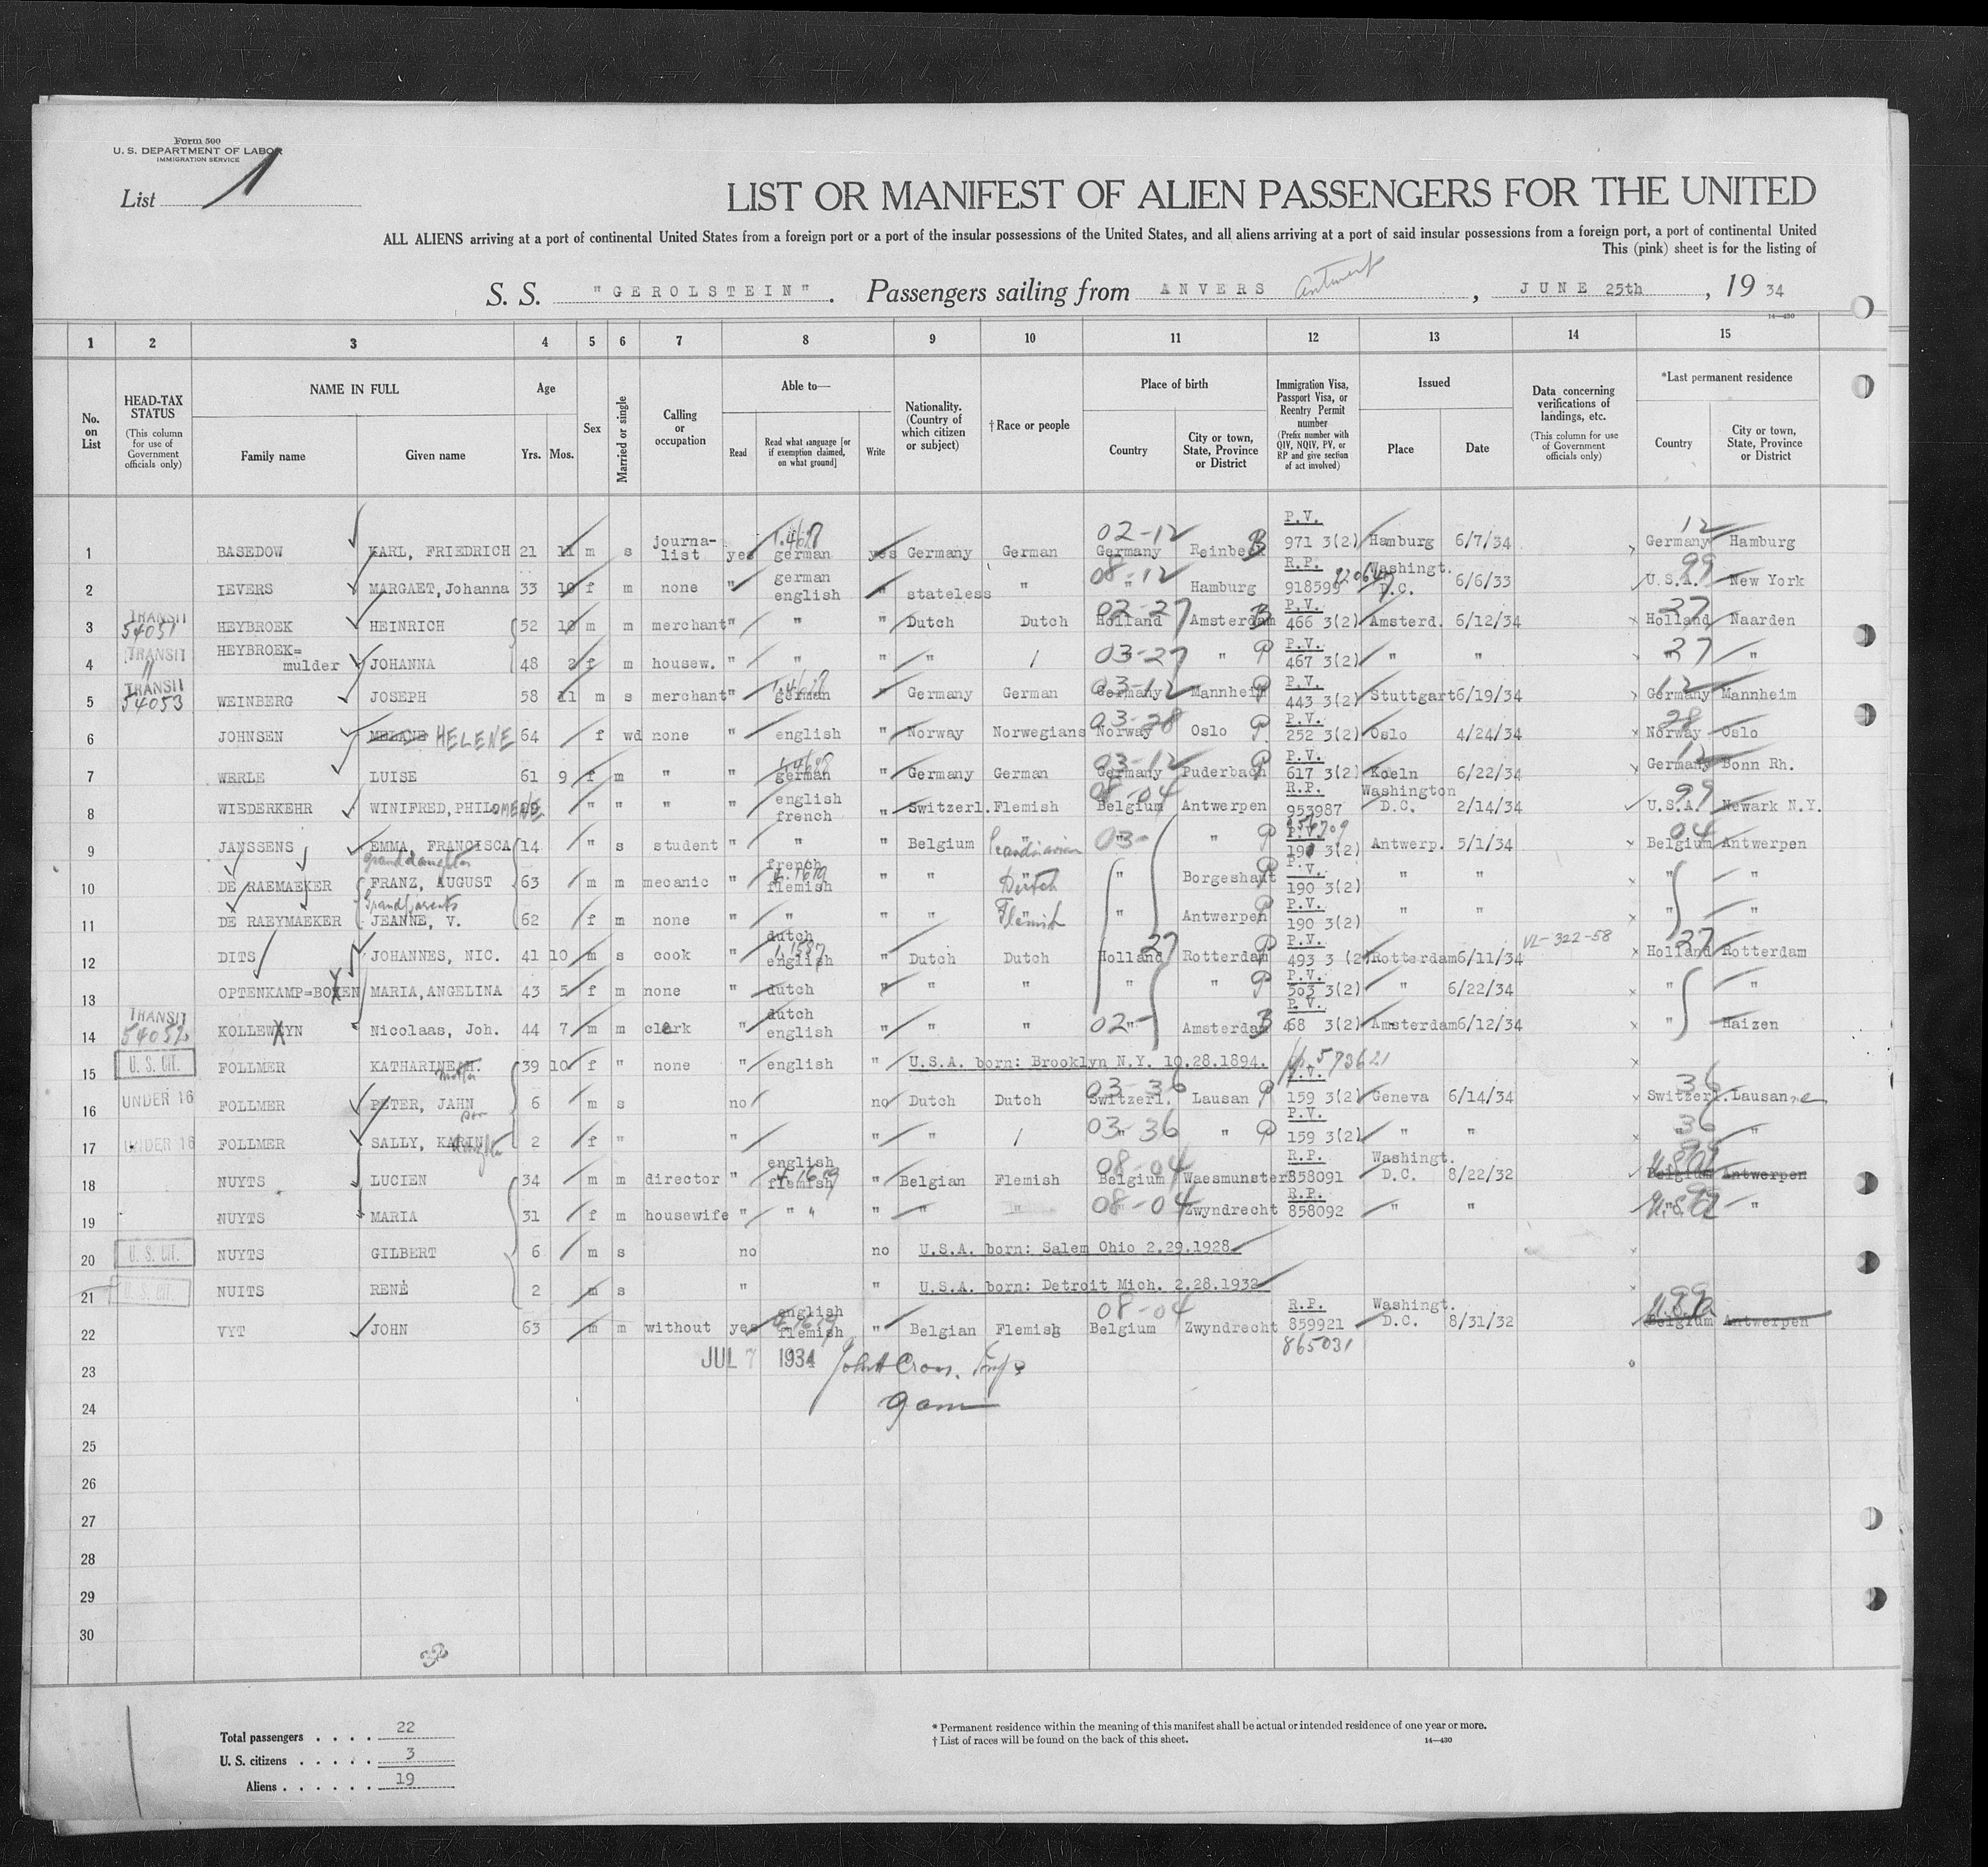 Form 500
U. S. DEPARTMENT OF LABOR
IMMIGRATION SERVICE
List 1
LIST OR MANIFEST OF ALIEN PASSENGERS FOR THE UNITED
ALL ALIENS arriving at a port of continental United States from a foreign port or a port of the insular possessions of the United States, and all aliens arriving at a port of said insular possessions from a foreign port, a port of continental United
This (pink) sheet is for the listing of
S. S. "GEROLSTEIN". Passengers sailing from ANVERS Antwerp, JUNE 25th, 19 34
14—430
1 2 3 4 5 6 7 8 9 10 11 12 13 14 15
No. on List
HEAD-TAX STATUS (This column for use of Government officials only)
NAME IN FULL Family name Given name
Age Yrs. Mos.
Sex
Married or single
Calling or occupation
Able to— Read Read what language [or if exemption claimed, on what ground] Write
Nationality. (Country of which citizen or subject)
†Race or people
Place of birth Country City or town, State, Province or District
Immigration Visa, Passport Visa, or Reentry Permit number (Prefix number with QIV, NQIV, PV, or RP and give section of act involved)
Issued Place Date
Data concerning verifications of landings, etc. (This column for use of Government officials only)
*Last permanent residence Country City or town, State, Province or District
1 BASEDOW KARL, FRIEDRICH 21 11 m s journalist yes german yes Germany German 02-12 Germany Reinbek B P.V. 971 3(2) Hamburg 6/7/34 12 Germany Hamburg
2 IEVERS MARGAET, Johanna 33 10 f m none " german english " stateless " 08-12 " Hamburg R.P. 918599 Washingt. D.C. 6/6/33 99 U.S.A. New York
3 TRANSIT 54051 HEYBROEK HEINRICH 52 10 m m merchant " " " Dutch Dutch 02-27 Holland Amsterdam B P.V. 466 3(2) Amsterd. 6/12/34 27 Holland Naarden
4 TRANSIT " HEYBROEK= mulder JOHANNA 48 2 f m housew. " " " " / 03-27 " P P.V. 467 3(2) " " 27 " "
5 TRANSIT 54053 WEINBERG JOSEPH 58 11 m s merchant " german " Germany German 03-12 Germany Mannheim P P.V. 443 3(2) Stuttgart 6/19/34 12 Germany Mannheim
6 JOHNSEN HELENE 64 f wd none " english " Norway Norwegians 03-28 Norway Oslo P P.V. 252 3(2) Oslo 4/24/34 28 Norway Oslo
7 WERLE LUISE 61 9 f m " " german " Germany German 03-12 Germany Puderbach P P.V. 617 3(2) Koeln 6/22/34 12 Germany Bonn Rh.
8 WIEDERKEHR WINIFRED, PHILOMENE " " " " english french " Switzerl. Flemish 08-04 Belgium Antwerpen R.P. 953987 Washington D.C. 2/14/34 99 U.S.A. Newark N.Y.
9 JANSSENS EMMA, FRANCISCA granddaughter 14 " s student " " " Belgium 03- " " P P.V. 190 3(2) Antwerp. 5/1/34 04 Belgium Antwerpen
10 DE RAEMAEKER FRANZ, AUGUST Grandparents 63 m m mecanic " french flemish " " Dutch " Borgeshaut P P.V. 190 3(2) " " " "
11 DE RAEYMAEKER JEANNE, V. 62 f m none " " " " Flemish " Antwerpen P P.V. 190 3(2) " " " "
12 DITS JOHANNES, NIC. 41 10 m s cook " dutch english " Dutch Dutch 27 Holland Rotterdam P P.V. 493 3 (2) Rotterdam 6/11/34 VL-322-58 27 Holland Rotterdam
13 OPTENKAMP=BOXEN MARIA, ANGELINA 43 5 f m none " dutch " " " " " P P.V. 503 3(2) " 6/22/34 " "
14 TRANSIT 54052 KOLLEWYN Nicolaas, Joh. 44 7 m m clerk " dutch english " " " 02- " Amsterdam B P.V. 468 3(2) Amsterdam 6/12/34 " Haizen
15 U. S. CIT. FOLLMER KATHARINE H. mother 39 10 f " none " english " U.S.A. born: Brooklyn N.Y. 10.28.1894. 573621
16 UNDER 16 FOLLMER PETER, JAHN son 6 m s no no Dutch Dutch 03-36 Switzerl. Lausan P P.V. 159 3(2) Geneva 6/14/34 36 Switzerl. Lausanne
17 UNDER 16 FOLLMER SALLY, KARIN daughter 2 f " " " " / 03-36 " " P P.V. 159 3(2) " " 36 " "
18 NUYTS LUCIEN 34 m m director " english flemish " Belgian Flemish 08-04 Belgium Waesmunster R.P. 858091 Washingt. D.C. 8/22/32 U.S.A. Belgium Antwerpen
19 NUYTS MARIA 31 f m housewife " " " " " 08-04 Zwyndrecht R.P. 858092 " " U.S.A. "
20 U. S. CIT. NUYTS GILBERT 6 m s no no U.S.A. born: Salem Ohio 2.29.1928.
21 U. S. CIT. NUITS RENÉ 2 m s " " U.S.A. born: Detroit Mich. 2.28.1932
22 VYT JOHN 63 m m without yes english flemish " Belgian Flemish 08-04 Belgium Zwyndrecht R.P. 859921 865031 Washingt. D.C. 8/31/32 99 U.S.A. Belgium Antwerpen
23 JUL 7 1934 John H Cross, Insp.
24 9 am
25
26
27
28
29
30
Total passengers . . . . 22
U. S. citizens . . . . . 3
Aliens . . . . . . 19
* Permanent residence within the meaning of this manifest shall be actual or intended residence of one year or more.
† List of races will be found on the back of this sheet.
14—430